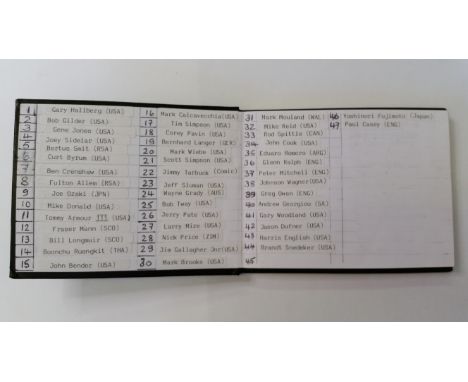 1 Gary Hallberg (USA)
2 Bob Gilder (USA)
3 Gene Jones (USA)
4 Joey Sidelar (USA)
5 Bertus Smit (RSA)
6 Curt Byrum (USA)
7 Ben Crenshaw (USA)
8 Fulton Allem (RSA)
9 Joe Ozaki (JPN)
10 Mike Donald (USA)
11 Tommy Armour III (USA)
12 Fraser Mann (SCO)
13 Bill Longmuir (SCO)
14 Boonchu Ruangkit (THA)
15 John Bender (USA)
16 Mark Calcavecchia(USA)
17 Tim Simpson (USA)
18 Corey Pavin (USA)
19 Bernhard Langer (GER)
20 Mark Wiebe (USA)
21 Scott Simpson (USA)
22 Jimmy Tarbuck (Comic)
23 Jeff Sluman (USA)
24 Wayne Grady (AUS)
25 Bob Tway (USA)
26 Jerry Pate (USA)
27 Larry Mize (USA)
28 Nick Price (ZIM)
29 Jim Gallagher Jnr(USA)
30 Mark Brooks (USA)
31 Mark Mouland (WAL)
32 Mike Reid (USA)
33 Rod Spittle (CAN)
34 John Cook (USA)
35 Eduaro Romero (ARG)
36 Glenn Ralph (ENG)
37 Peter Mitchell (ENG)
38 Johnson Wagner(USA)
39 Greg Owen (ENG)
40 Andrew Georgiou (SA)
41 Gary Woodland (USA)
42 Jason Dufner (USA)
43 Harris English (USA)
44 Brandt Snedeker (USA)
45
46 Yoshinori Fujimoto (Japan)
47 Paul Casey (ENG)